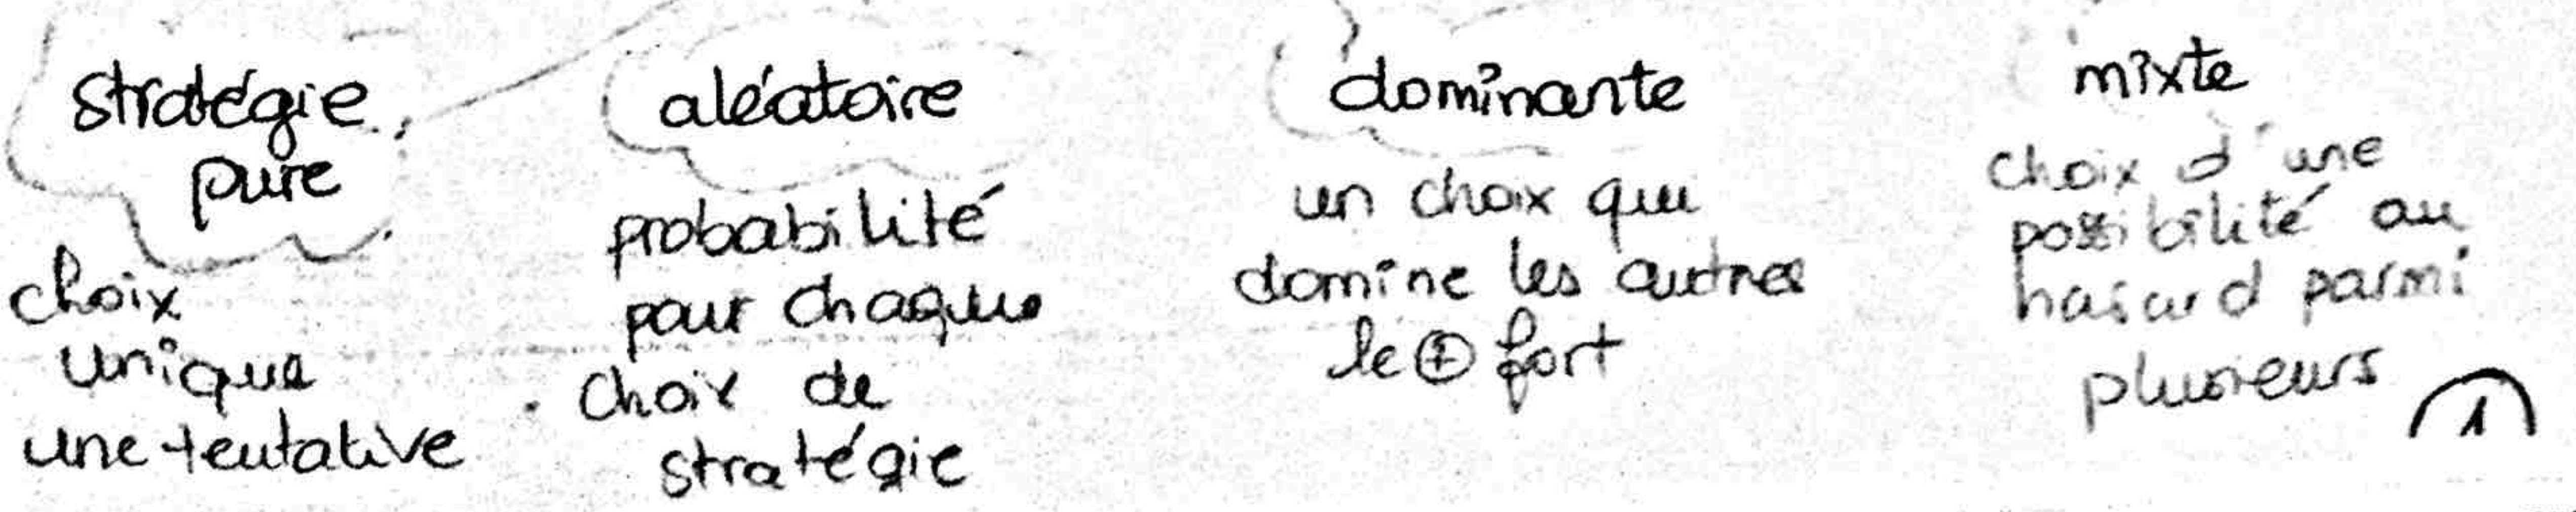 stratégie
pure
choix
unique
une tentative
aléatoire
probabilité
pour chaque
choix de
stratégie
dominante
un choix qui
domine les autres
le ⊕ fort
mixte
choix d'une
possibilité au
hasard parmi
plusieurs
1